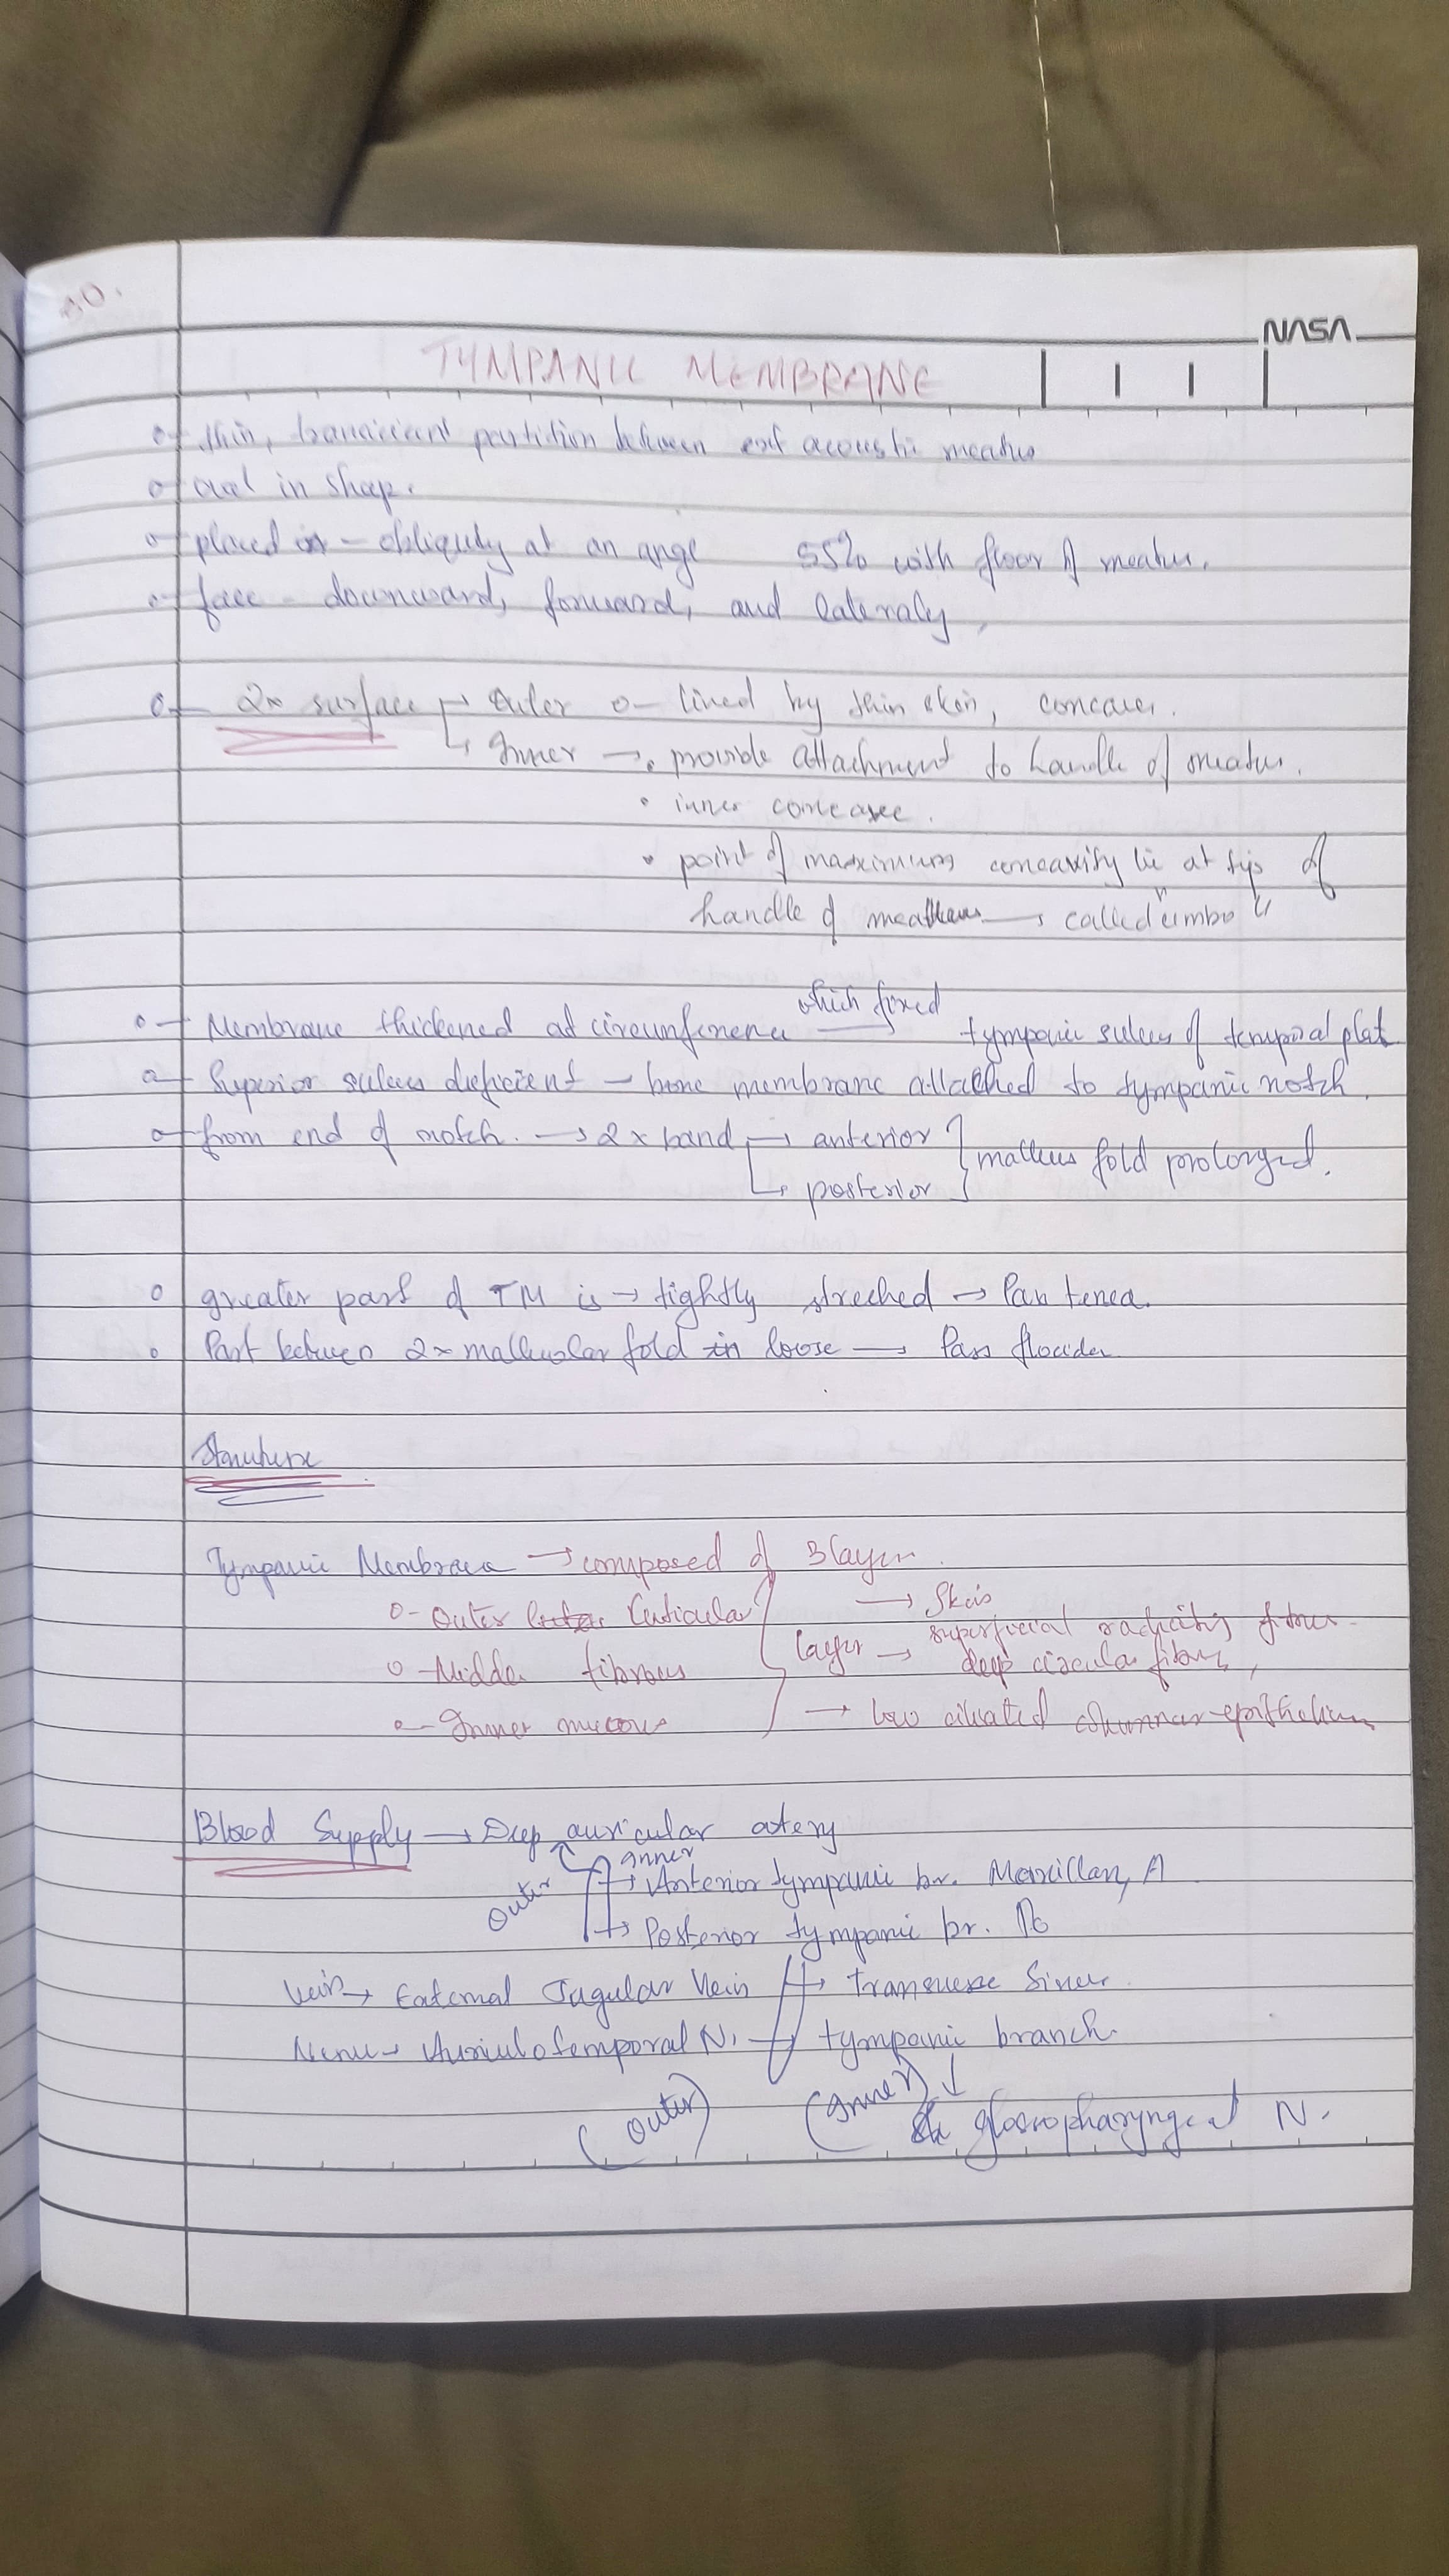 NASA
TYMPANIC MEMBRANE
thin, partition between ext acoustic meatus
oval in shap.
placed - obliquity at an ange 55% with floor of meatus.
face - downward, forward, and lateraly,
2x surface → Outer o- lined by thin skin,
↳ Inner → • provide attachment to handle of
• inner
• point of maximum concavity lie at tip of
handle of → called "umbo"
which fixed
Membrane thickened at circumference → tympanic sulcus of temporal plat
Superior sulcus deficient - membrane attached to tympanic notch.
from end of notch. → 2x band → anterior } malleus fold prolonged.
↳ posterior
greater part of TM is → tightly streched → Pars
Part between 2x fold in loose → Pars
Structure
Tympanic → composed of 3 layer.
o- Outer Cuticular → Skin
o- fibrous layer → superficial fibres
deep circular
o- Inner mucous → low ciliated columnar epithelium
Blood Supply → Deep auricular atery
Outer Inner
→ Anterior tympanic br. Maxillary A
→ Posterior tympanic br.
Vein → External Jugular Vein → Transverse Sinus.
Auriculotemporal N. → tympanic branch.
(outer) (Inner) ↓
glossopharyngeal N.